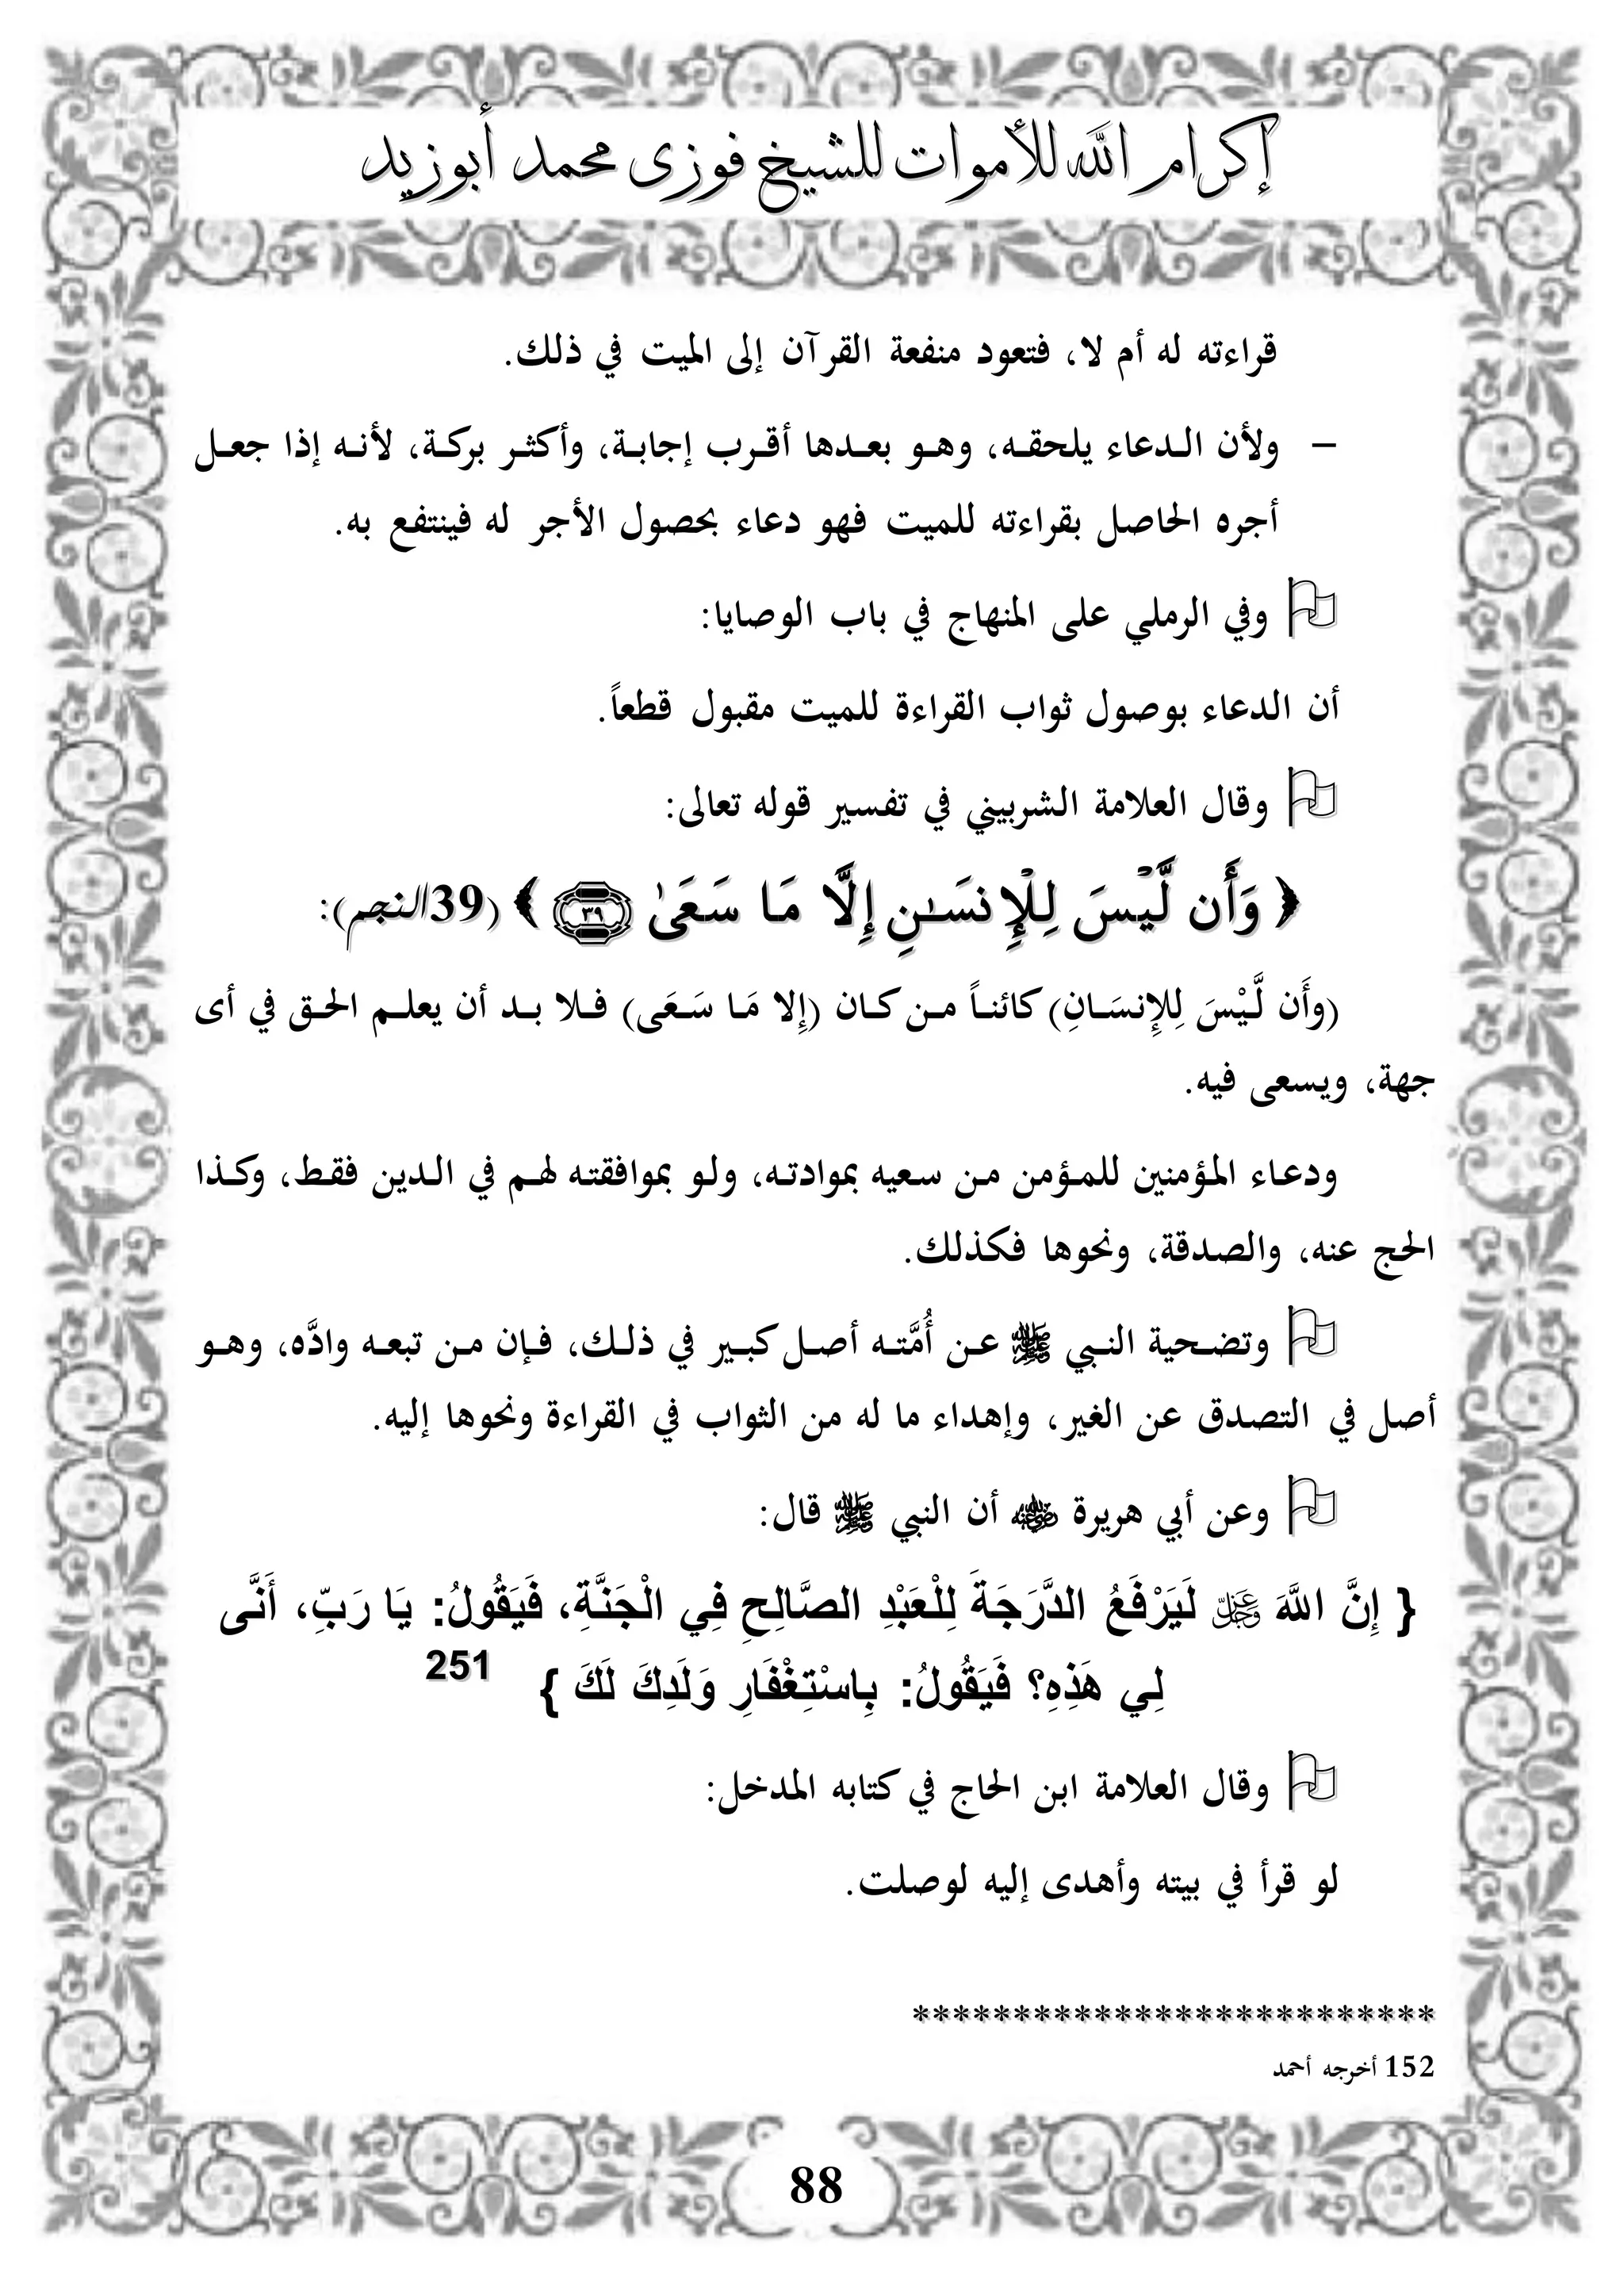 إكرام الله للأموات للشيخ فوزى محمد أبوزيد
قراءته له أم لا، فتعود منفعة القرآن إلى الميت في ذلك.
- ولأن الدعاء يلحقه، وهو بعدها أقرب إجابة، وأكثر بركة، لأنه إذا جعل
أجره الحاصل بقراءته للميت فهو دعاء بحصول الأجر له فينتفع به.
وفي الرملي على المنهاج في باب الوصايا:
أن الدعاء بوصول ثواب القراءة للميت مقبول قطعاً.
وقال العلامة الشربيني في تفسير قوله تعالى:
﴿ وَأَن لَّيْسَ لِلْإِنسَٰنِ إِلَّا مَا سَعَىٰ ٣٩ ﴾ (39النجم):
(وأَن لَّيْسَ لِلإِنسَانِ) كائناً من كان (إِلا مَا سَعَى) فلا بد أن يعلم الحق في أى
جهة، ويسعى فيه.
ودعاء المؤمنين للمؤمن من سعيه بموادته، ولو بموافقته لهم في الدين فقط، وكذا
الحج عنه، والصدقة، ونحوها فكذلك.
وتضحية النبي ﷺ عن أُمَّته أصل كبير في ذلك، فإن من تبعه وادَّه، وهو
أصل في التصدق عن الغير، وإهداء ما له من الثواب في القراءة ونحوها إليه.
وعن أبي هريرة ﵁ أن النبي ﷺ قال:
{ إِنَّ اللَّهَ ﷻ لَيَرْفَعُ الدَّرَجَةَ لِلْعَبْدِ الصَّالِحِ فِي الْجَنَّةِ، فَيَقُولُ: يَا رَبِّ، أَنَّى
لِي هَذِهِ؟ فَيَقُولُ: بِاسْتِغْفَارِ وَلَدِكَ لَكَ } 251
وقال العلامة ابن الحاج في كتابه المدخل:
لو قرأ في بيته وأهدى إليه لوصلت.
**************************
152 أخرجه أحمد
88